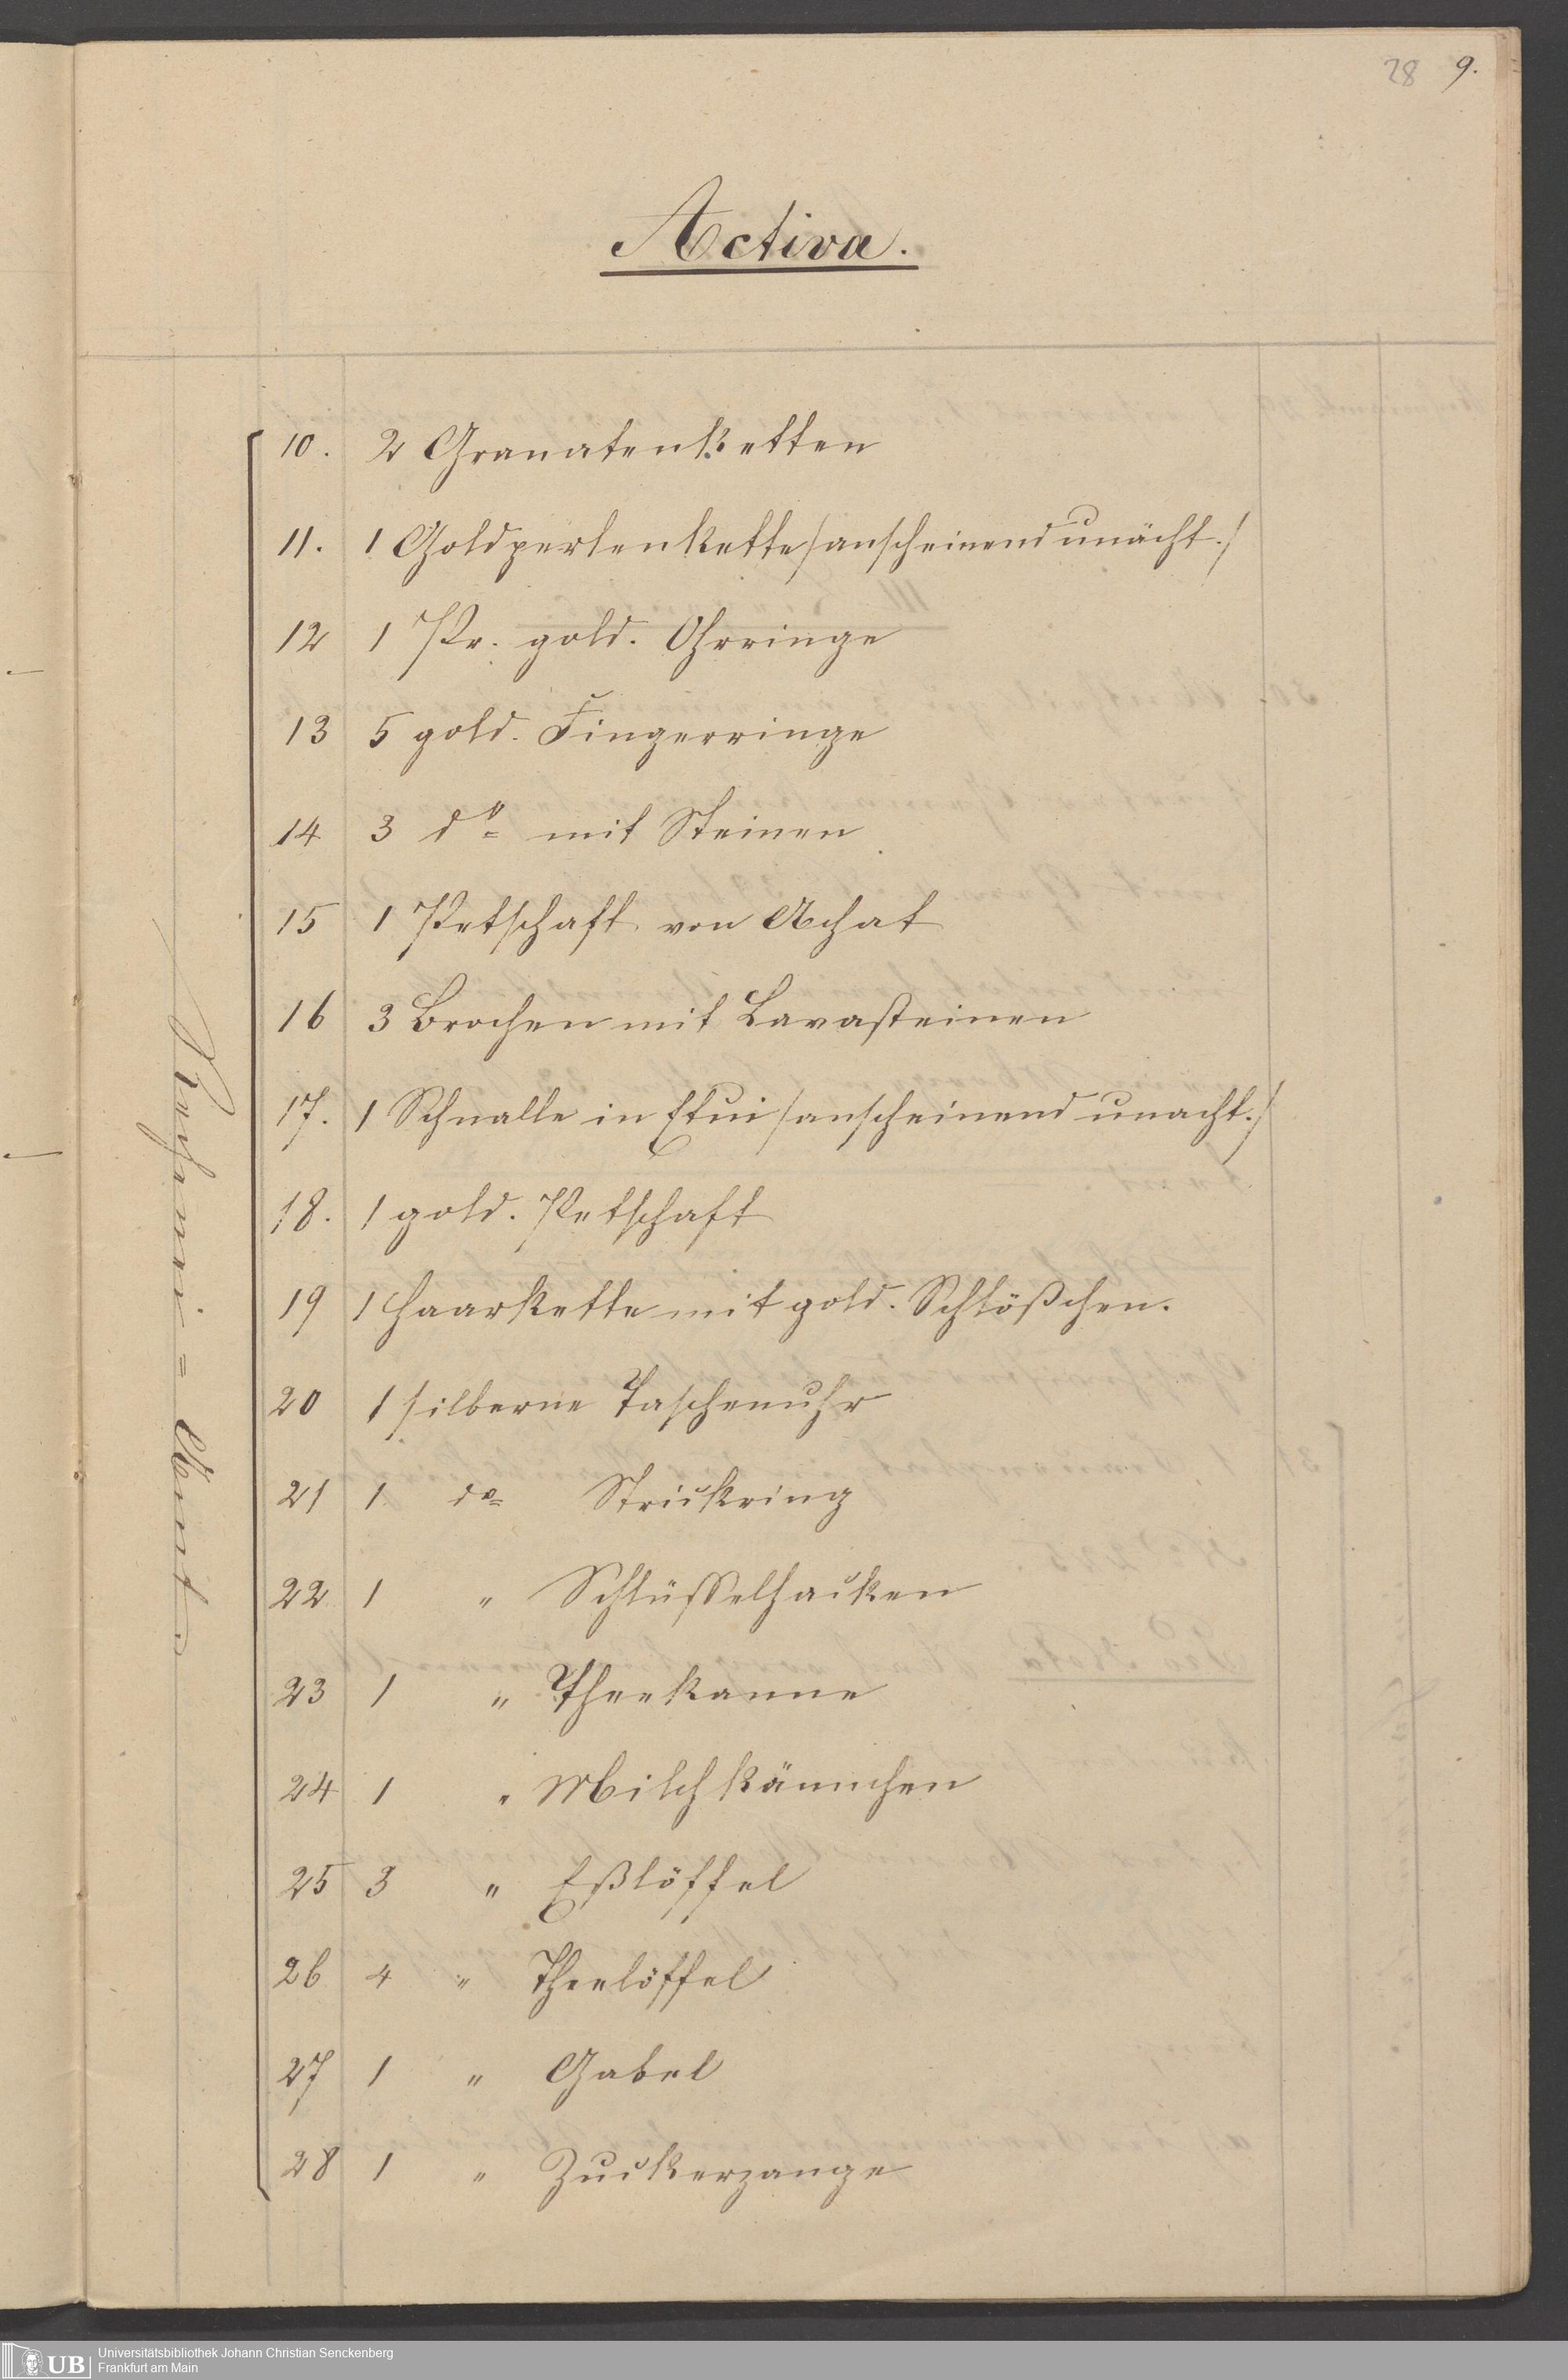 28 9.
Activa.
10. 2 Granatenketten
11. 1 Goldperlenkette /anscheinend unächt./
12 1 Pr. gold. Ohrringe
13 5 gold. Fingerringe
14 3 do mit Steinen
15 1 Petschaft von Achat
16 3 Brochen mit Lavasteinen
17. 1 Schnalle in Etui /anscheinend unächt./
18. 1 gold. Petschaft
19 1 Haarkette mit gold. Schlößchen.
20 1 silberne Taschenuhr
21 1 do Strickring
22 1 " Schlüsselhacken
23 1 " Theekanne
24 1 " Milchkännchen
25 3 " Eßlöffel
26 4 " Theelöffel
27 1 " Gabel
28 1 " Zuckerzange
Rechnei-Amt
UB Universitätsbibliothek Johann Christian Senckenberg
Frankfurt am Main